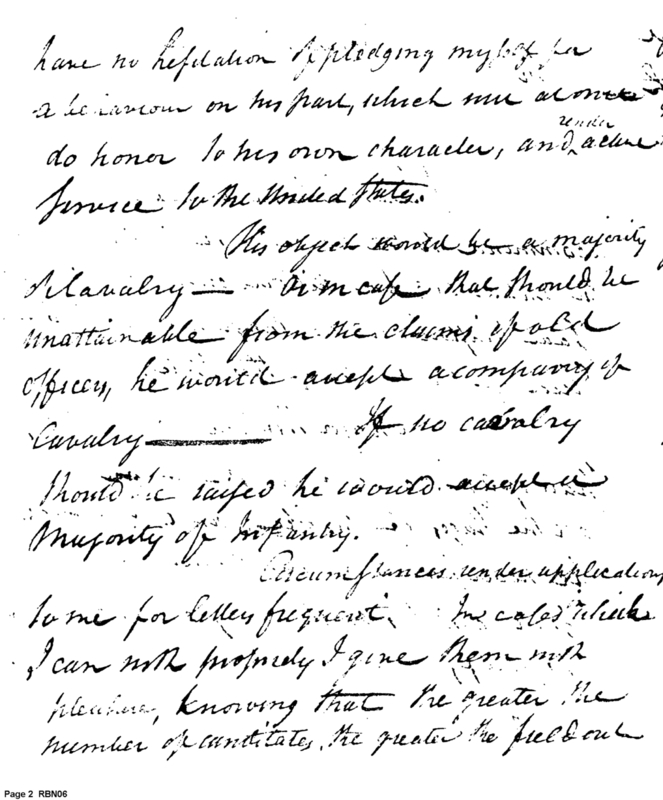 have no hesitation of pledging myself for
a behaviour on his part, which will at once
do honor to his own character, and render active
Service to the United States.
His object would be a majority
of Cavalry— or in case that should be
unattainable from the claims of old
officers, he would accept a company of
Cavalry— If no cavalry
should be raised he would accept a
Majority of Infantry.
Circumstances render applications
to me for letters frequent. In cases which
I can with propriety I give them with
pleasure, knowing that the greater the
number of canditates, the greater the field out
Page 2 RBN06